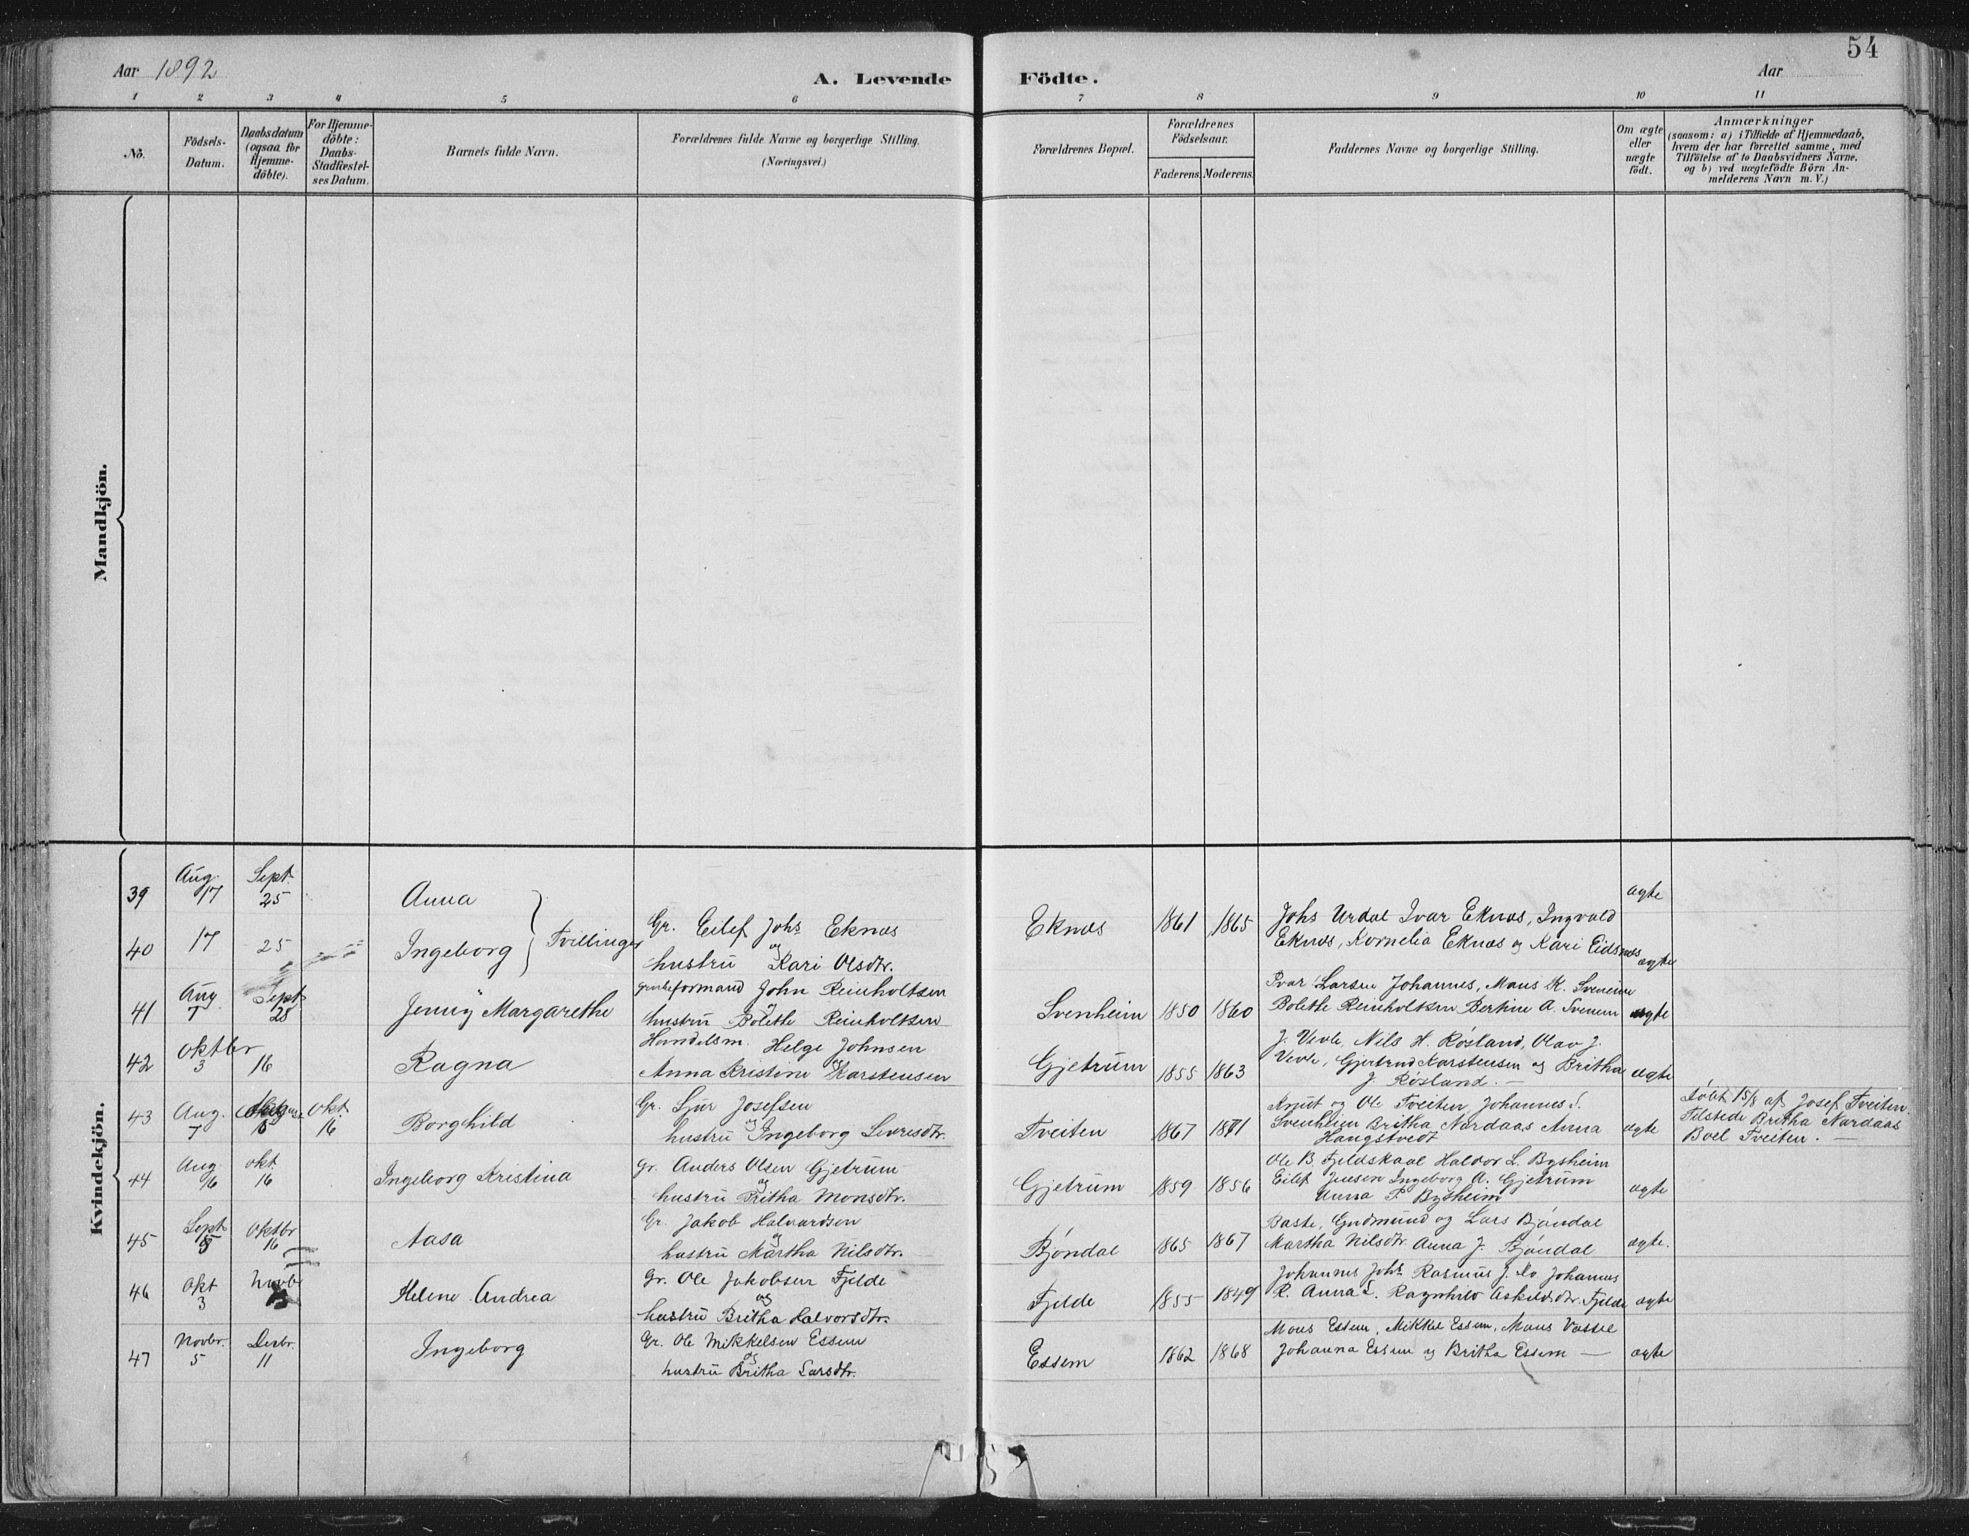 54
Aar 1892
A. Levende Födte.
Aar
1 2 3 4 5 6 7 8 9 10 11
Nö.
Födsels-Datum.
Daabsdatum (ogsaa for Hjemme-döbte).
For Hjemme-döbte: Daabs-Stadfæstel-ses Datum.
Barnets fulde Navn.
Forældrenes fulde Navne og borgerlige Stilling.
(Næringsvei.)
Forældrenes Bopæl.
Forældrenes Födselsaar.
Faderens. Moderens.
Faddernes Navne og borgerlige Stilling.
Om ægte eller uægte födt.
Anmærkninger
(saasom: a) i Tilfælde af Hjemmedaab,
hvem der har forrettet samme, med
Tilföielse af to Daabsvidners Navne,
og b) ved uægtefödte Börn An-
melderens Navn m. V.)
Mandkjön.
Kvindekjön.
39 Aug. 17 Sept 25 Anna ægte
40 17 25 Ingeborg } Tvillinger Gr. Eilef Johs Eknæs og hustru Kari Olsdtr. Eknæs 1861 1865 Johs Urdal Ivar Eknæs, Ingvald
Eknæs, Kornelia Eknæs og Kari Eidsnæs ægte
41 Aug 7 Sept 28 Jenny Margarethe formand John Reinholtsen og hustru Bolethe Reinholtsen Svenheim 1850 1860 Ivar Larsen Johannes, Mons K. Svenem
Bolethe Reinholtsen Bertine A. Svenem ægte
42 Oktbr 3 16 Ragna Handelsm. Helge Johnsen
Anna Kristine Karstensen Gjetrum 1855 1863 J. Vevle, Nils H. Røsland, Olav J.
Vevle, Gjertrud Karstensen og Britha
J. Røsland. — ægte
43 Aug. 7 Okt. 16 Borghild Gr. Sjur Josefsen og hustru Ingeborg Sevresdtr. Tveiten 1867 1871 Knut og Ole Tveiten, Johannes S.
Svenheim Britha Nordaas Anna
Hangstvedt ægte Døbt 15/8 af Josef Tveiten.
Tilstede Britha Nordaas
Boel Tveiten. —
44 Aug okt. 16 Ingeborg Kristina Gr. Anders Olsen Gjetrum og hustru Britha Monsdtr. Gjetrum 1859 1856 Ole B. Fjeldskaal Haldor L. Bysheim
Eilef Jensen Ingeborg A. Gjetrum
Anna P Bysheim ægte
45 Sept Oktbr 16 Aasa Gr. Jakob Halvardsen og hustru Martha Nilsdtr. Bjøndal 1865 1867 Baste, Gudmund og Lars Bjøndal
Martha Nilsdtr. Anna J. Bjøndal ægte.
46 Okt 3 Novb Helene Andrea Gr. Ole Jakobsen Fjelde og hustru Britha Halvorsdtr. Fjelde 1855 1849 Johannes Johs Rasmus J. Do Johannes
R. Anna L. Ragnhild Askildsdtr. Fjelde ægte
47 Novbr. 5 Desbr. 11 Ingeborg Gr. Ole Mikkelsen Essem og hustru Britha Larsdtr. Essem 1862 1868 Mons Essem, Mikkel Essem, Mons Vassel
Johanna Essem og Britha Essem — ægte